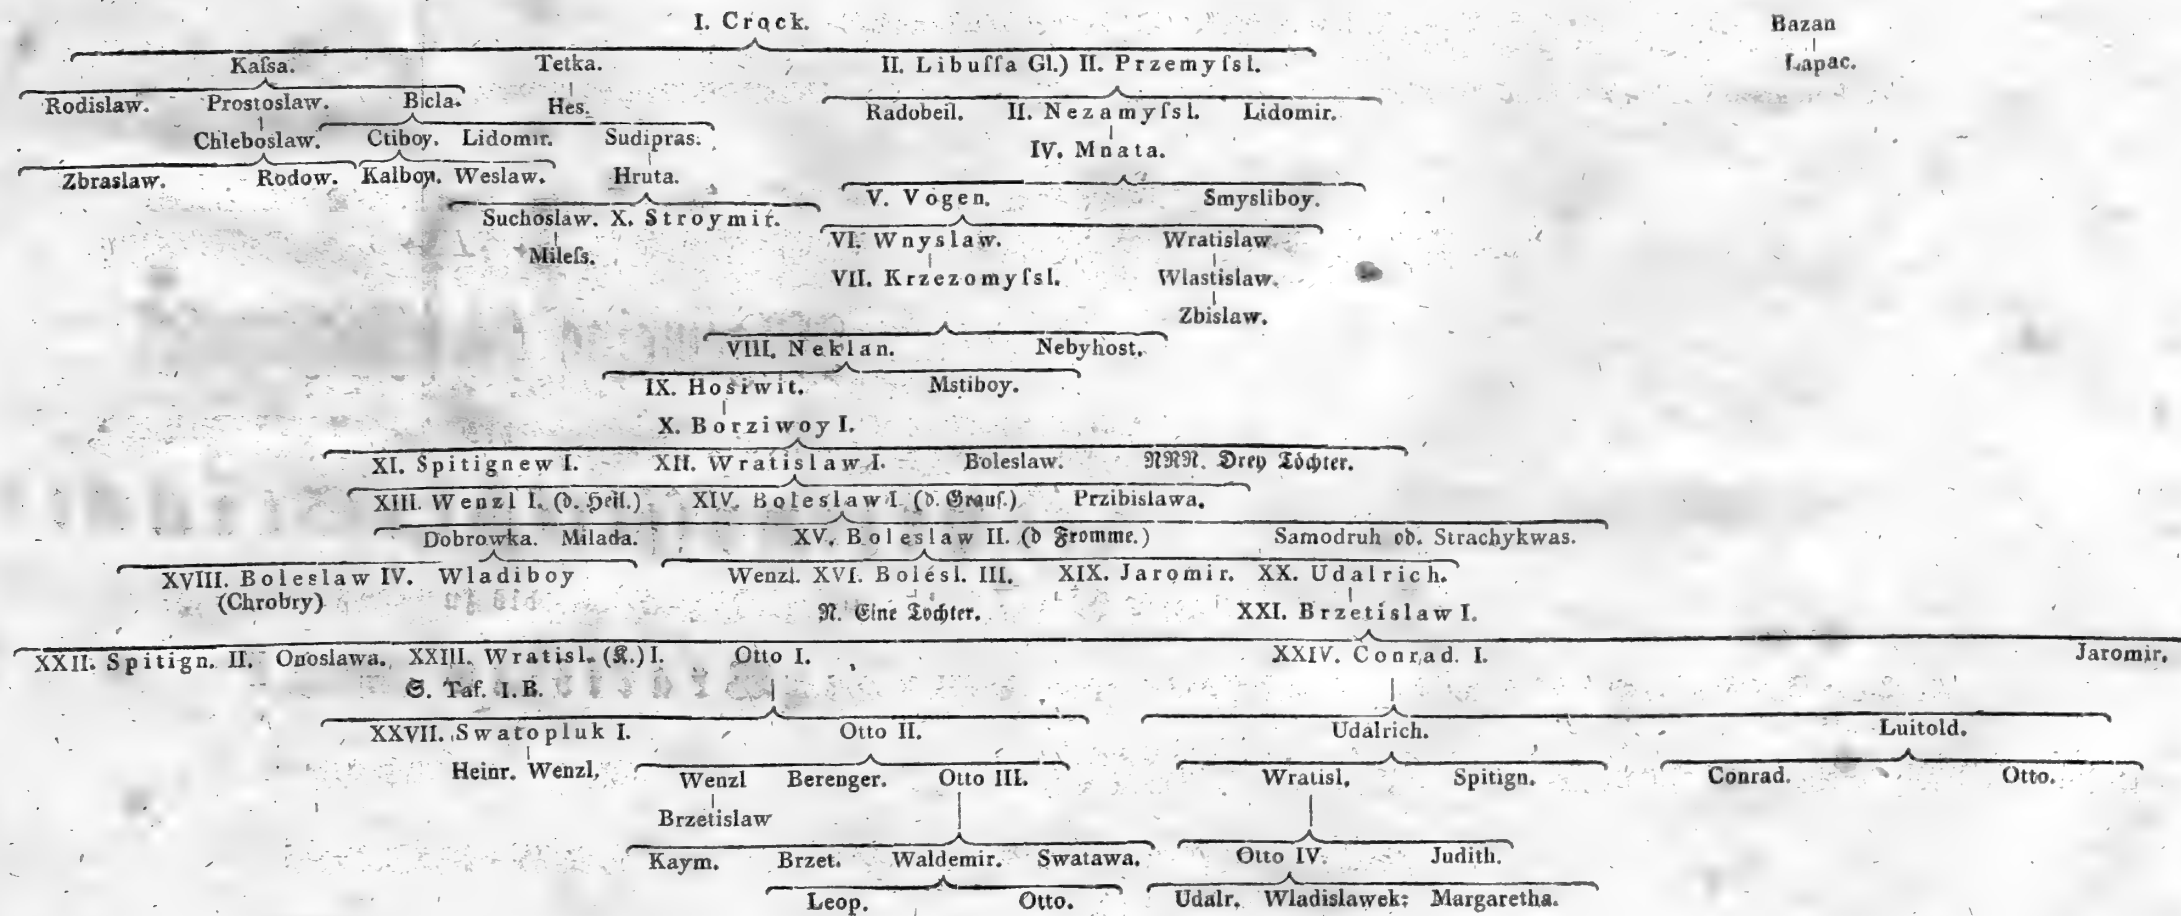 I. Crock. Bazan
Kaſsa. Tetka. II. Libuſſa Gl.) II. Przemyſsl. Lapac.
Rodislaw. Prostoslaw. Bicla. Hes. Radobeil. II. Nezamyſsl. Lidomir.
Chleboslaw. Ctiboy. Lidomir. Sudipras. IV. Mnata.
Zbraslaw. Rodow. Kalboy. Weslaw. Hruta.
V. Vogen. Smysliboy.
Suchoslaw. X. Stroymir.
VI. Wnyslaw. Wratislaw
Mileſs.
VII. Krzezomyſsl. Wlastislaw.
Zbislaw.
VIII. Neklan. Nebyhost.
IX. Hosiwit. Mstiboy.
X. Borziwoy I.
XI. Spitignew I. XII. Wratislaw I. Boleslaw. NNN. Drey Töchter.
XIII. Wenzl I. (d. Heil.) XIV. Boleslaw I. (d. Grauſ.) Przibislawa.
Dobrowka. Milada. XV. Boleslaw II. (d Fromme.) Samodruh od. Strachykwas.
XVIII. Boleslaw IV. Wladiboy Wenzl. XVI. Bolesl. III. XIX. Jaromir. XX. Udalrich.
(Chrobry) N. Eine Tochter. XXI. Brzetislaw I.
XXII. Spitign. II. Onoslawa. XXIII. Wratisl. (K.) I. Otto I. XXIV. Conrad. I. Jaromir.
S. Taf. I. B.
XXVII. Swatopluk I. Otto II. Udalrich. Luitold.
Heinr. Wenzl. Wenzl Berenger. Otto III. Wratisl. Spitign. Conrad. Otto.
Brzetislaw
Kaym. Brzet. Waldemir. Swatawa. Otto IV. Judith.
Leop. Otto. Udalr. Wladislawek. Margaretha.